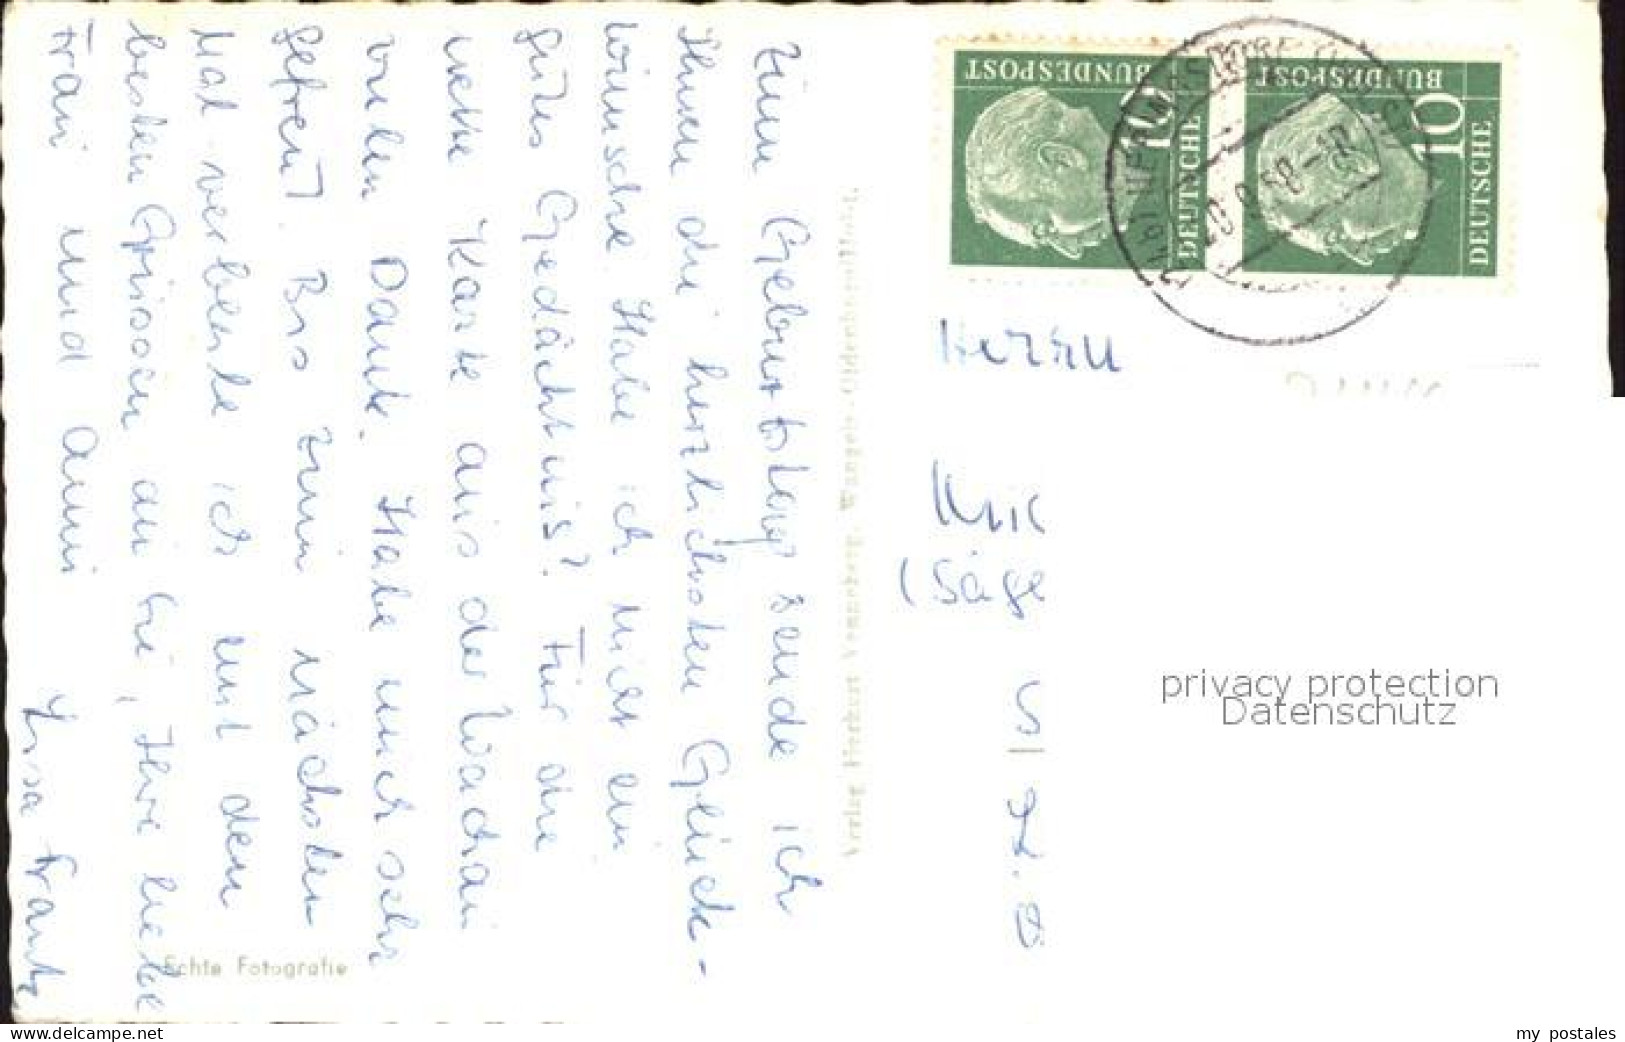 Zum Geburtstag sende ich
Ihnen die herzlichsten Glück-
wünsche. Habe ich nicht ein
gutes Gedächtnis? Für die
nette Karte aus der Wachau
vielen Dank. Habe mich sehr
gefreut. Bis zum nächsten
Mal verbleibe ich mit den
besten Grüssen an Sie, Ihre liebe
Frau und Anni
Frantz
Echte Fotografie
Verlag Herbert
10
DEUTSCHE
BUNDESPOST
10
DEUTSCHE
BUNDESPOST
20.9.58
Herrn
(Säge
privacy protection
Datenschutz
www.delcampe.net
my_postales